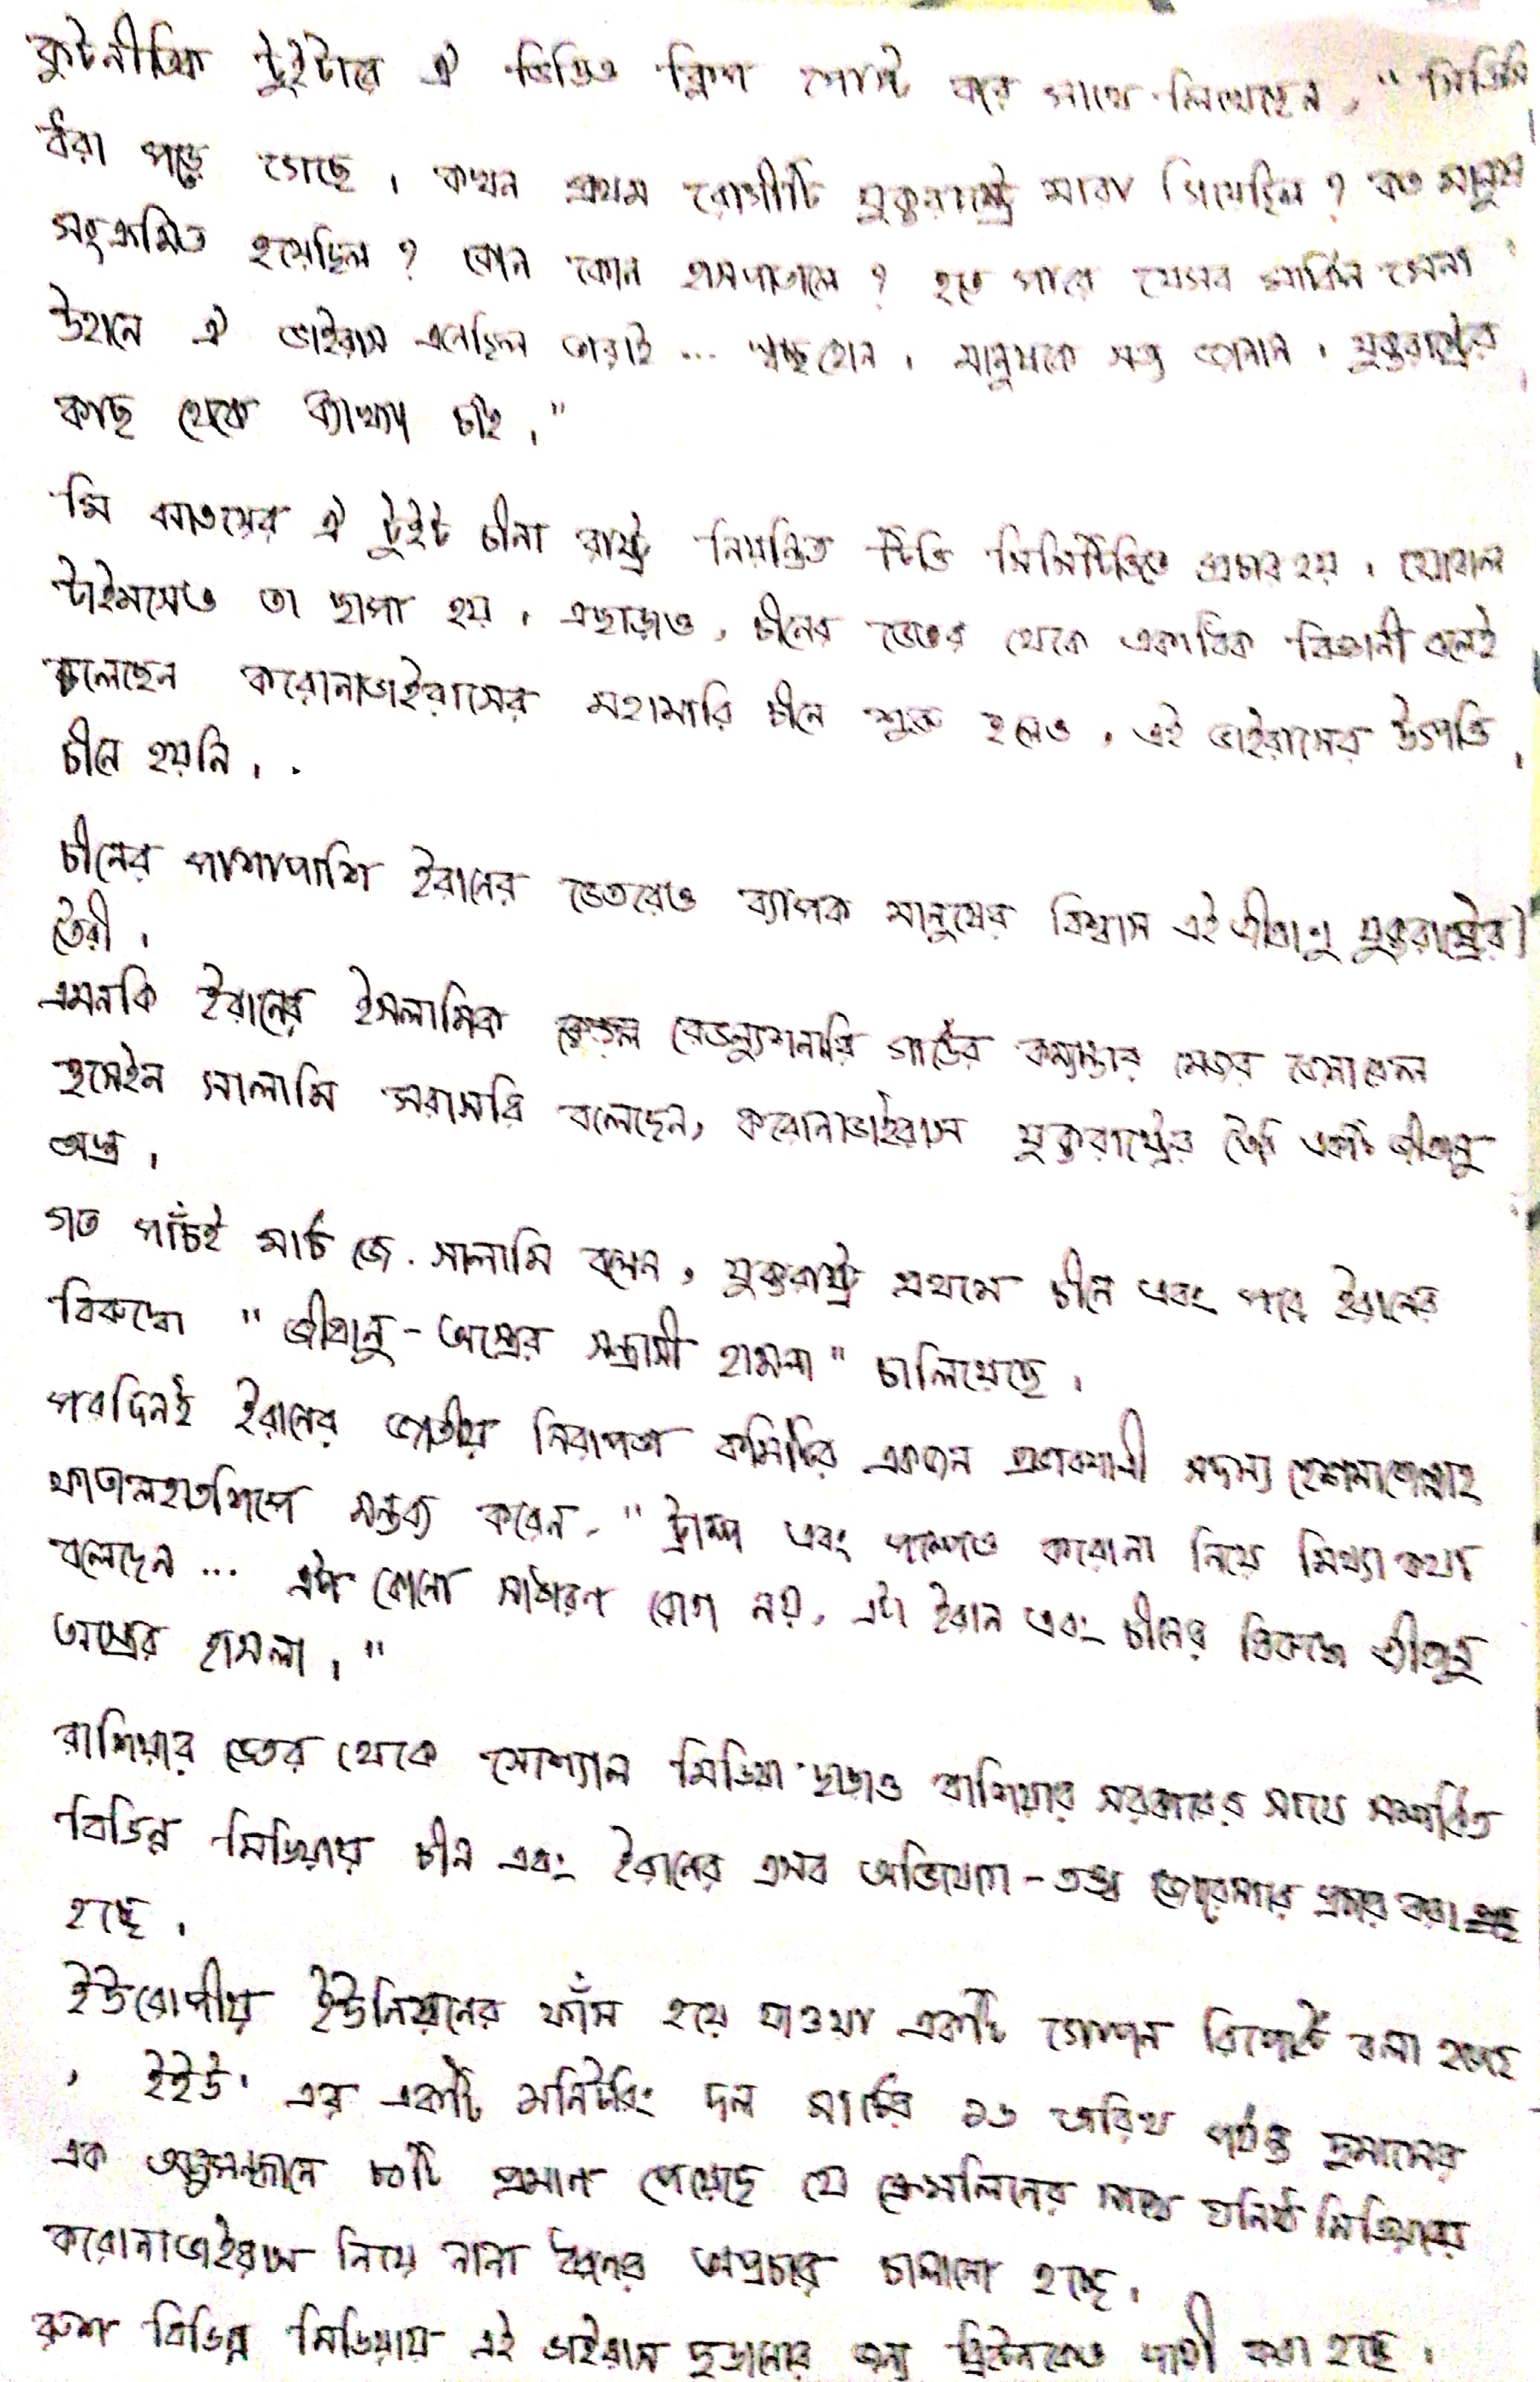 কুটনীতিক টুইটারে ঐ ভিডিও ক্লিপ পোস্ট করে সাথে লিখেছেন, "সিডিসি
ধরা পড়ে গেছে। কখন প্রথম রোগীটি যুক্তরাষ্ট্রে মারা গিয়েছিল? কত মানুষ
সংক্রমিত হয়েছিল? কোন কোন হাসপাতালে? হতে পারে যেসব মার্কিন সেনা
উহানে ঐ ভাইরাস এনেছিল তারাই... স্বচ্ছ হোন। মানুষকে সত্য জানান। যুক্তরাষ্ট্রের
কাছ থেকে ব্যাখ্যা চাই।"
মি ঝাওয়ের ঐ টুইট চীনা রাষ্ট্র নিয়ন্ত্রিত টিভি সিসিটিভিতে প্রচার হয়। গ্লোবাল
টাইমসেও তা ছাপা হয়। এছাড়াও, চীনের ভেতর থেকে একাধিক বিজ্ঞানী বলেই
চলেছেন করোনাভাইরাসের মহামারি চীনে শুরু হলেও, এই ভাইরাসের উৎপত্তি
চীনে হয়নি।
চীনের পাশাপাশি ইরানের ভেতরেও ব্যাপক মানুষের বিশ্বাস এই জীবাণু যুক্তরাষ্ট্রের
তৈরী।
এমনকি ইরানের ইসলামিক রেভল্যুশনারি গার্ডের কমান্ডার মেজর জেনারেল
হুসেইন সালামি সরাসরি বলেছেন, করোনাভাইরাস যুক্তরাষ্ট্রের তৈরি একটি জীবাণু
অস্ত্র।
গত পাঁচই মার্চ জে. সালামি বলেন, যুক্তরাষ্ট্র প্রথমে চীনে এবং পরে ইরানের
বিরুদ্ধে "জীবানু-অস্ত্রের সন্ত্রাসী হামলা" চালিয়েছে।
পরদিনই ইরানের জাতীয় নিরাপত্তা কমিটির একজন প্রভাবশালী সদস্য হেশমাতোল্লাহ
ফাতালহতপিশে মন্তব্য করেন, "ট্রাম্প এবং পম্পেও করোনা নিয়ে মিথ্যা কথা
বলেছেন... এটা কোনো সাধারণ রোগ নয়, এটা ইরান এবং চীনের বিরুদ্ধে জীবাণু
অস্ত্রের হামলা।"
রাশিয়ার ভেতর থেকে সোশ্যাল মিডিয়া ছাড়াও রাশিয়ার সরকারের সাথে সম্পর্কিত
বিভিন্ন মিডিয়ায় চীন এবং ইরানের এসব অভিযোগ-তত্ত্ব জোরেসোরে প্রচার করা
হচ্ছে।
ইউরোপীয় ইউনিয়নের ফাঁস হয়ে যাওয়া একটি গোপন রিপোর্টে বলা হয়েছে
, ইইউ' এর একটি মনিটরিং দল মার্চের ১৬ তারিখ পর্যন্ত দুমাসের
এক অনুসন্ধানে ৮০টি প্রমাণ পেয়েছে যে ক্রেমলিনের সাথে ঘনিষ্ঠ মিডিয়ায়
করোনাভাইরাস নিয়ে নানা ধরনের অপপ্রচার চালানো হচ্ছে।
রুশ বিভিন্ন মিডিয়ায় এই ভাইরাস ছড়ানোর জন্য ব্রিটেনকেও দায়ী করা হচ্ছে।